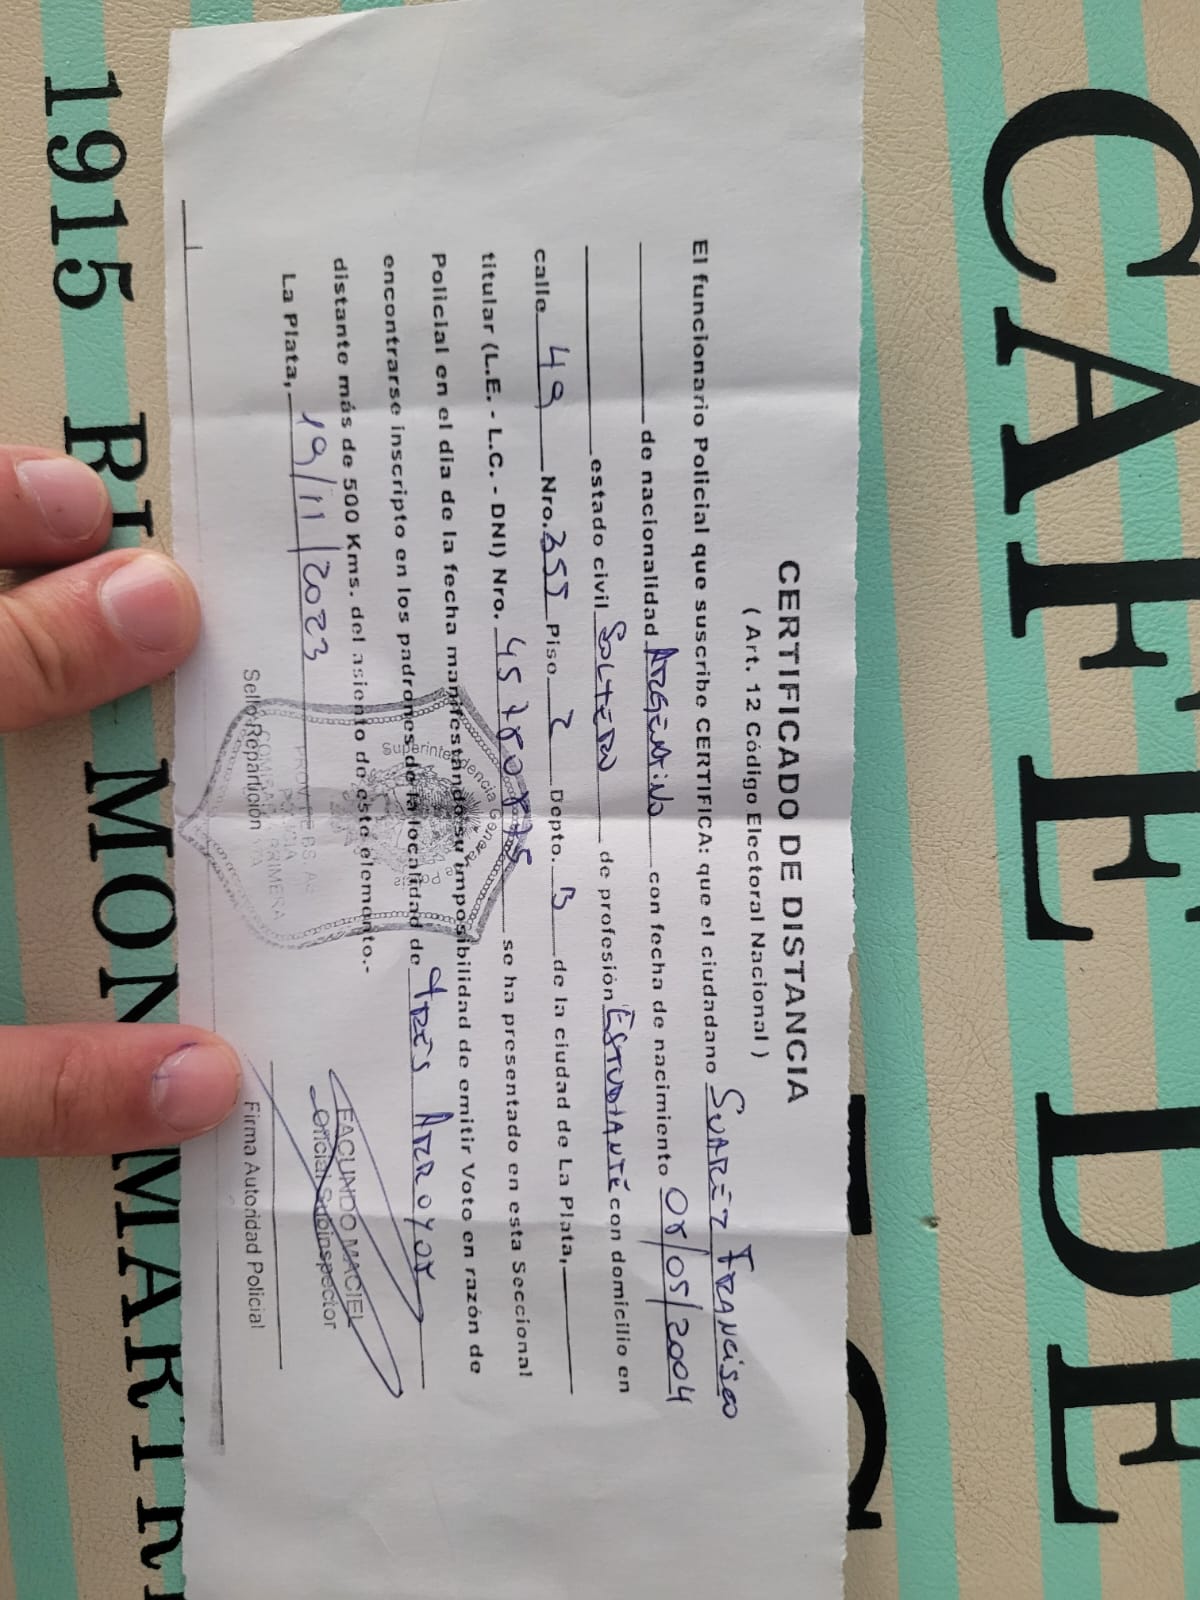 CERTIFICADO DE DISTANCIA
( Art. 12 Código Electoral Nacional )
El funcionario Policial que suscribe CERTIFICA: que el ciudadano SUAREZ FRANCISCO
de nacionalidad ARGENTINO con fecha de nacimiento 08/05/2004
estado civil SOLTERO de profesión ESTUDIANTE con domicilio en
calle 49 Nro. 355 Piso 2 Depto. B de la ciudad de La Plata,
titular (L.E. - L.C. - DNI) Nro. 45780875 se ha presentado en esta Seccional
Policial en el día de la fecha manifestando su imposibilidad de emitir Voto en razón de
encontrarse inscripto en los padrones de la localidad de TRES ARROYOS
distante más de 500 Kms. del asiento de este elemento.-
La Plata, 19/11/2023
Superintendencia General de Policía
PROV. DE BS. AS.
POLICIA
COMISARIA PRIMERA
LA PLATA
Sello Repartición
FACUNDO MACIEL
Oficial Subinspector
Firma Autoridad Policial
CAFE DE
1915 RU MONMARTR